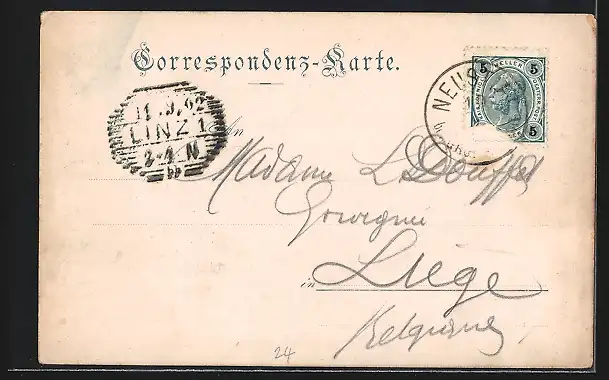 Correspondenz-Karte.
5 HELLER 5
NEUS
11.9.02
LINZ 1
2-4 N
An
Madame L. Douffet
5
in Liége
Belgique
24